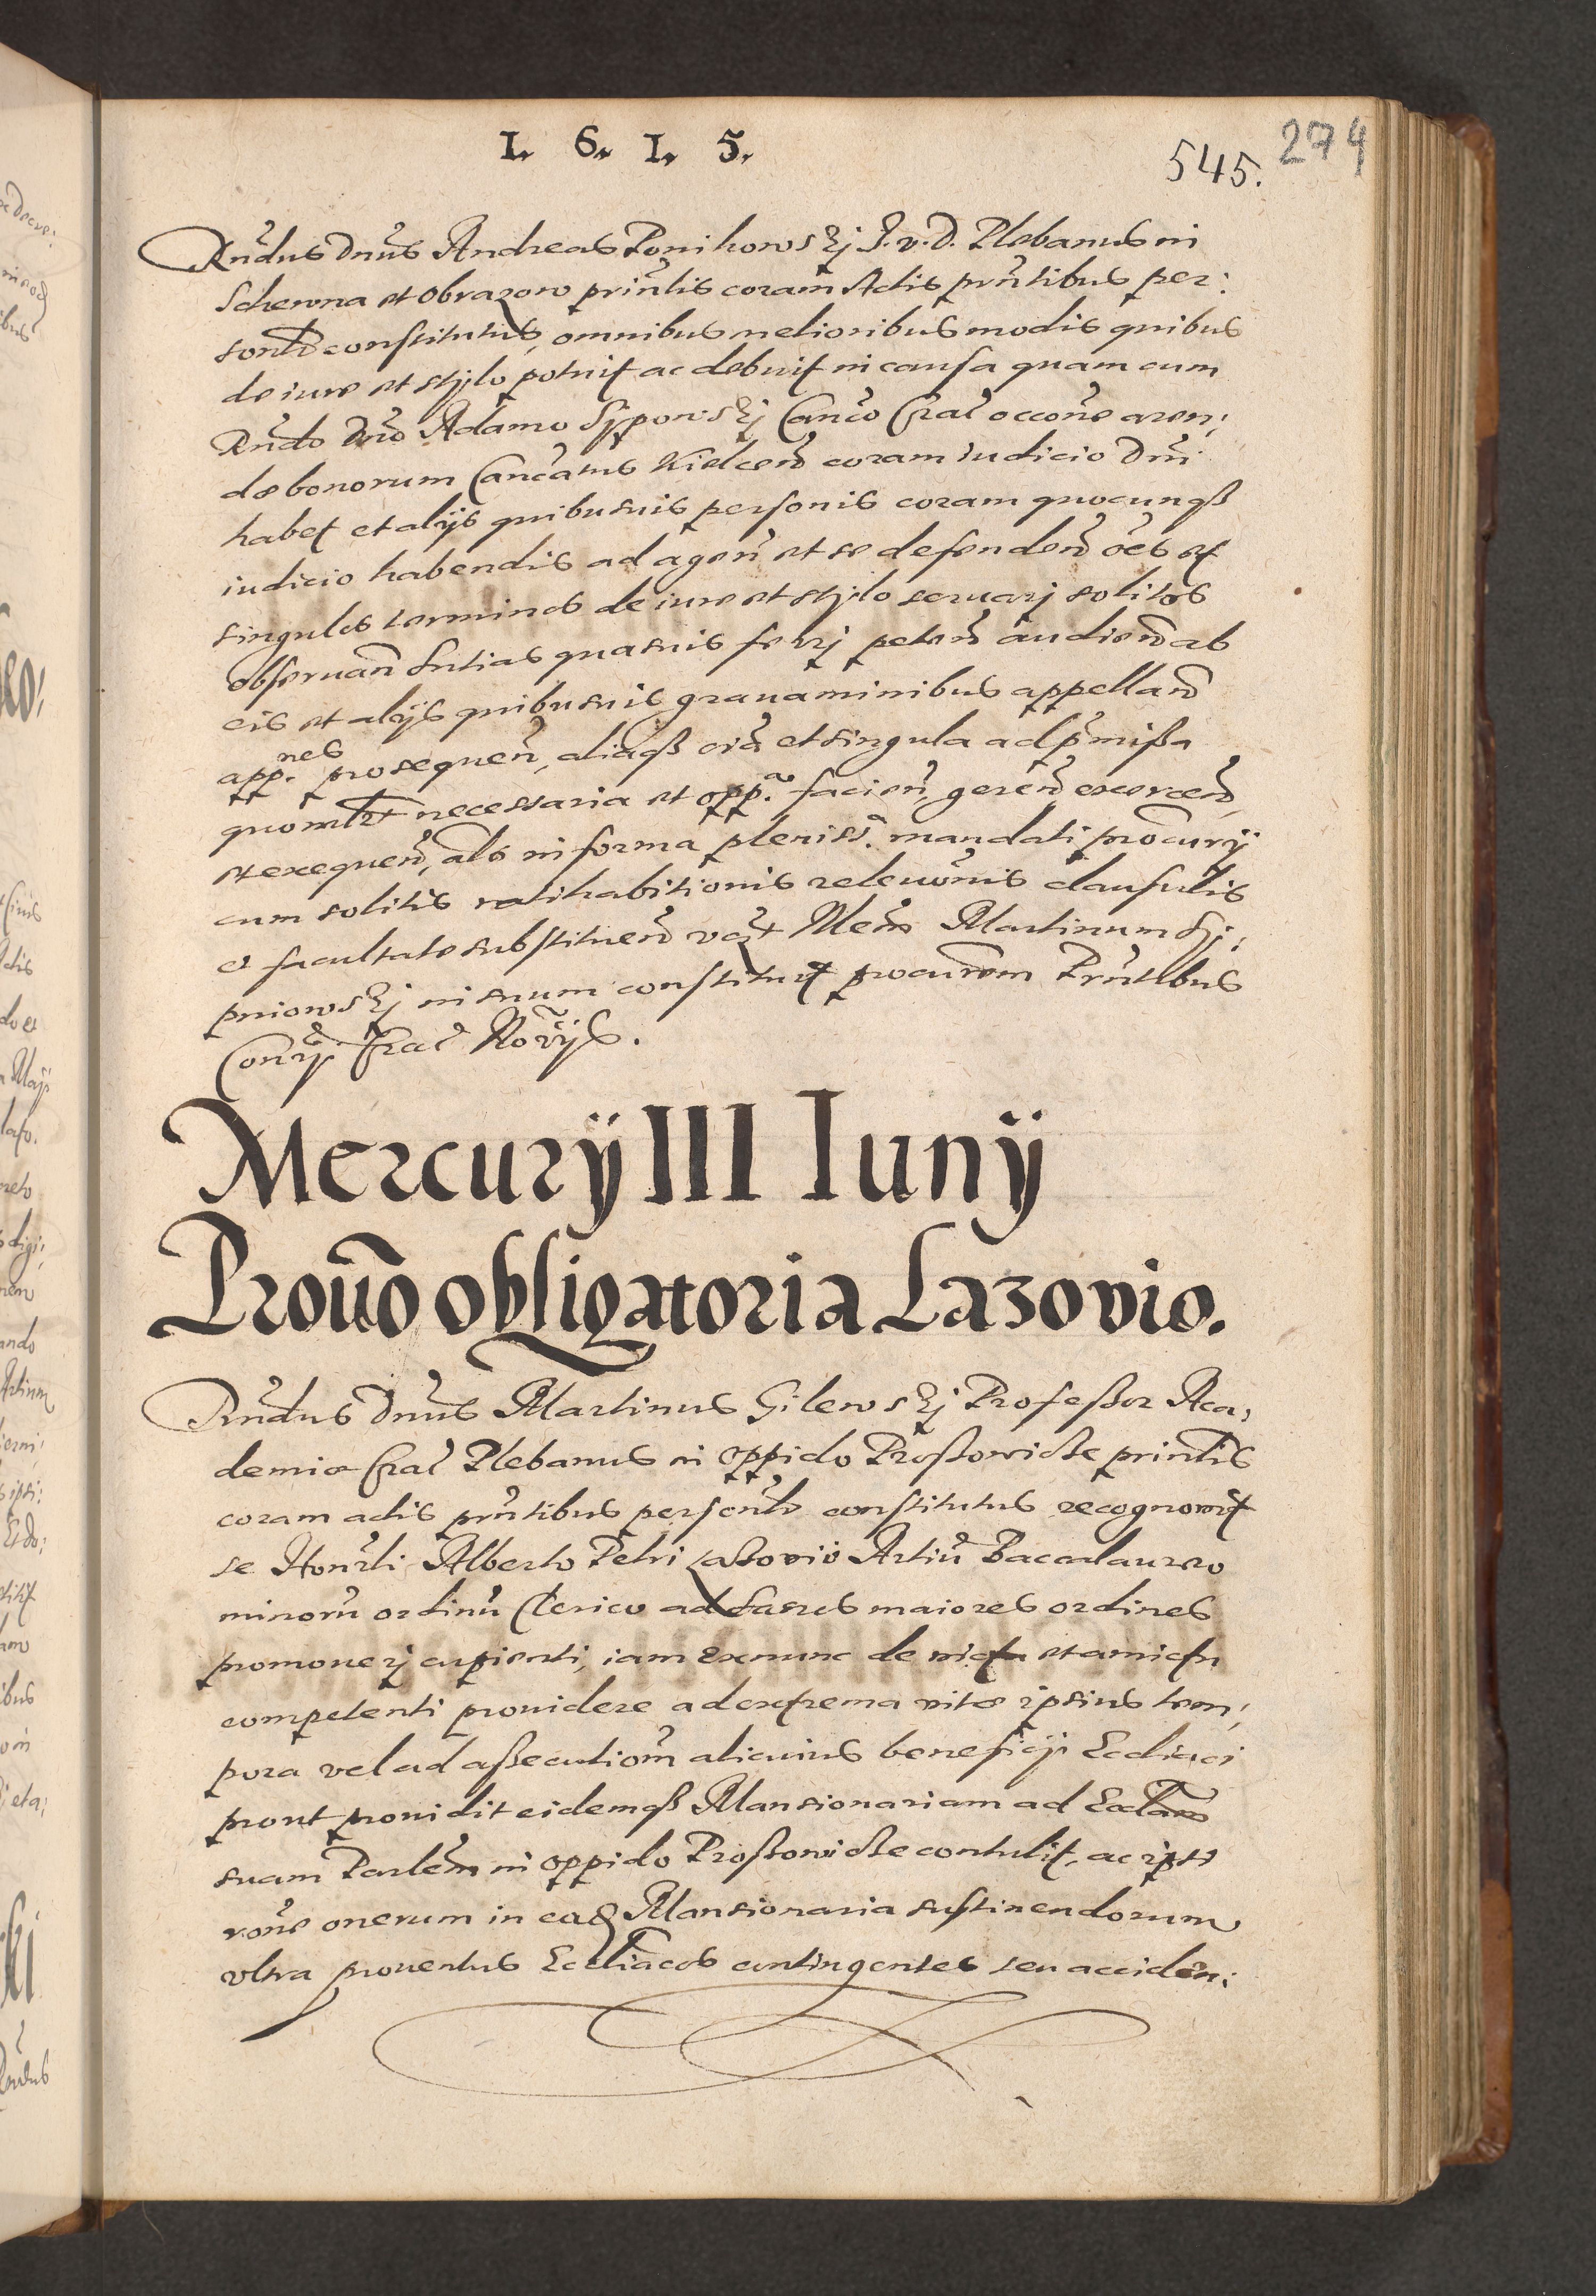 1. 6. 1. 5.
545. 274
Rñdus Dñus Andreas Ponikowskj J. v. D. Plebanus in
Schenna et Obrazow prinłis coram Actis prñtibus per:
sonłr constitutus, omnibus melioribus modis quibus
de iure et stylo potuit ac debuit in causa quam cum
Rñdo Dño Adamo Sypowskj Canco Crac occone aren:
dæ bonorum Cancatus Kielcen coram Iudicio Dñi
habet et alijs quibusuis personis coram quocunqß
iudicio habendis ad agen et se defenden oes et
singulos terminos de iure et stylo seruarj solitos
obseruan sntias quasuis ferrj peten audien ab
eis et alijs quibusuis grauaminibus appellan
app.nes prosequen, aliaqß oia et singula ad pmißa
quomłt necessaria et opp.a facien, geren exercen,
et exequen, als in forma pleniss.a mandati procurij
cum solitis ratihabitionis releuonis clausulis
et facultate substituen Mem Martinum Sy:
pniowskj in suum constituit procurem Prñtibus
Cony. Crac Norijs.
Mercurij III Iunij
Prouo obligatoria Lazovio.
Rñdus Dñus Martinus Gilewskj Profeßor Aca:
demiæ Crac Plebanus in oppido Proßowicße prinłis
coram actis prñtibus personłr constitutus recognovit
se Honrli Alberto Petri Laßovio Artiu Baccalaureo
minoru ordinu Clerico ad sacros maiores ordines
promouerj cupienti, iam exnunc de victu et amictu
competenti prouidere ad extrema vitæ ipsius tem:
pora vel ad aßecutiom alicuius beneficij Eccliaci
prout prouidit eidemqß Mansionariam ad Ecclam
suam Parlem in oppido Proßowicße contulit, ac ipsi
rone onerum in ead Mansionaria sustinendorum
vltra prouentus Eccliacos contingentes seu acciden: